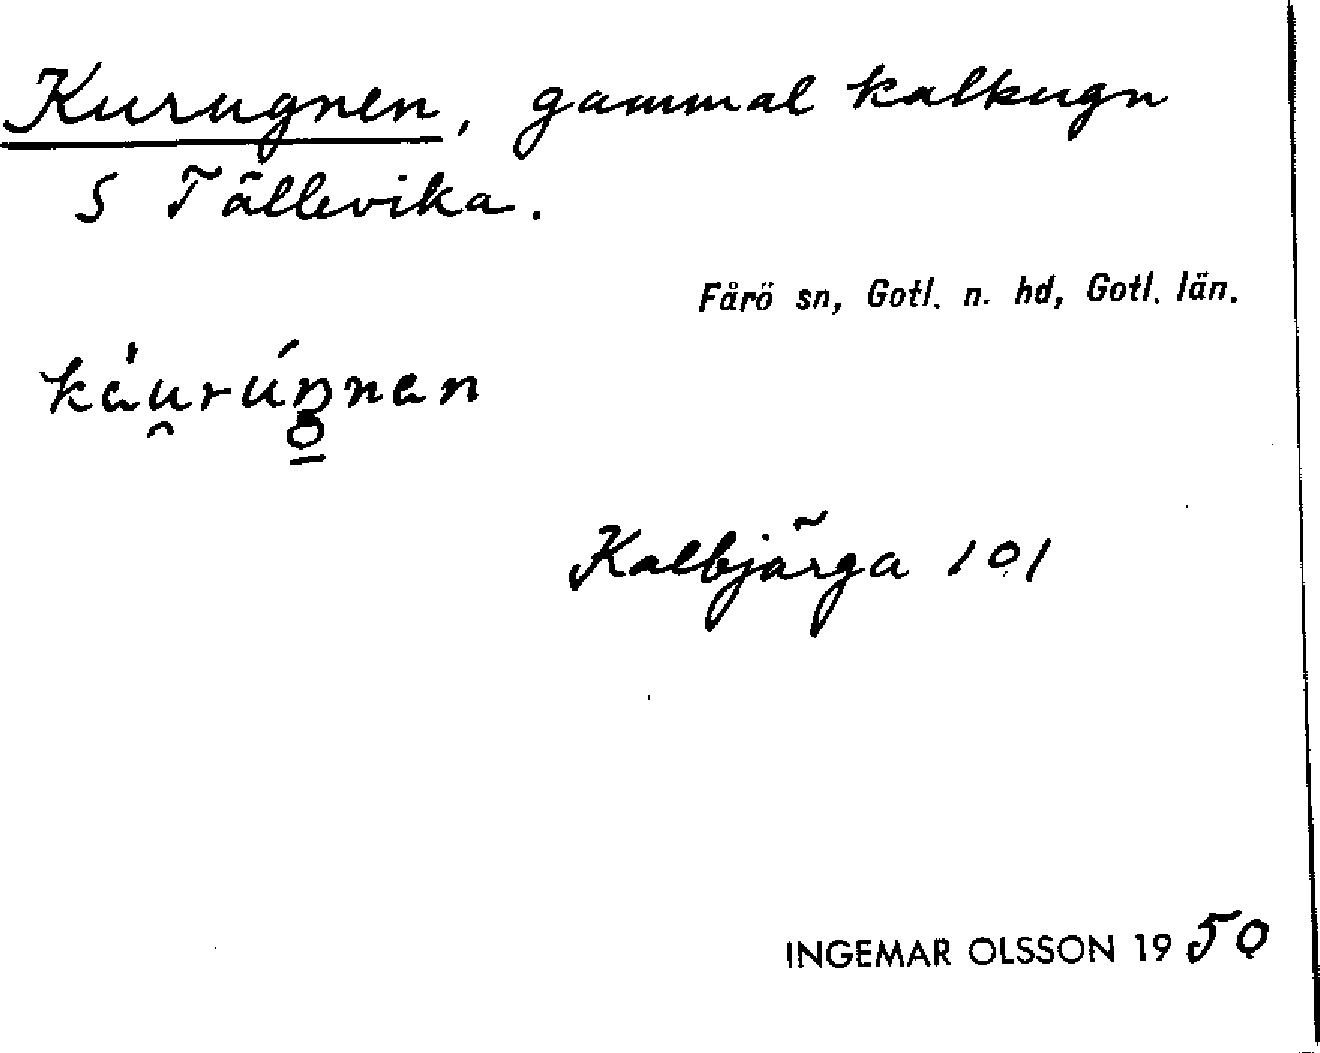 Kurugnen, gammal kalkugn
S Tällevika.
Fårö sn, Gotl. n. hd, Gotl. län.
Kalbjärga 101
INGEMAR OLSSON 1950